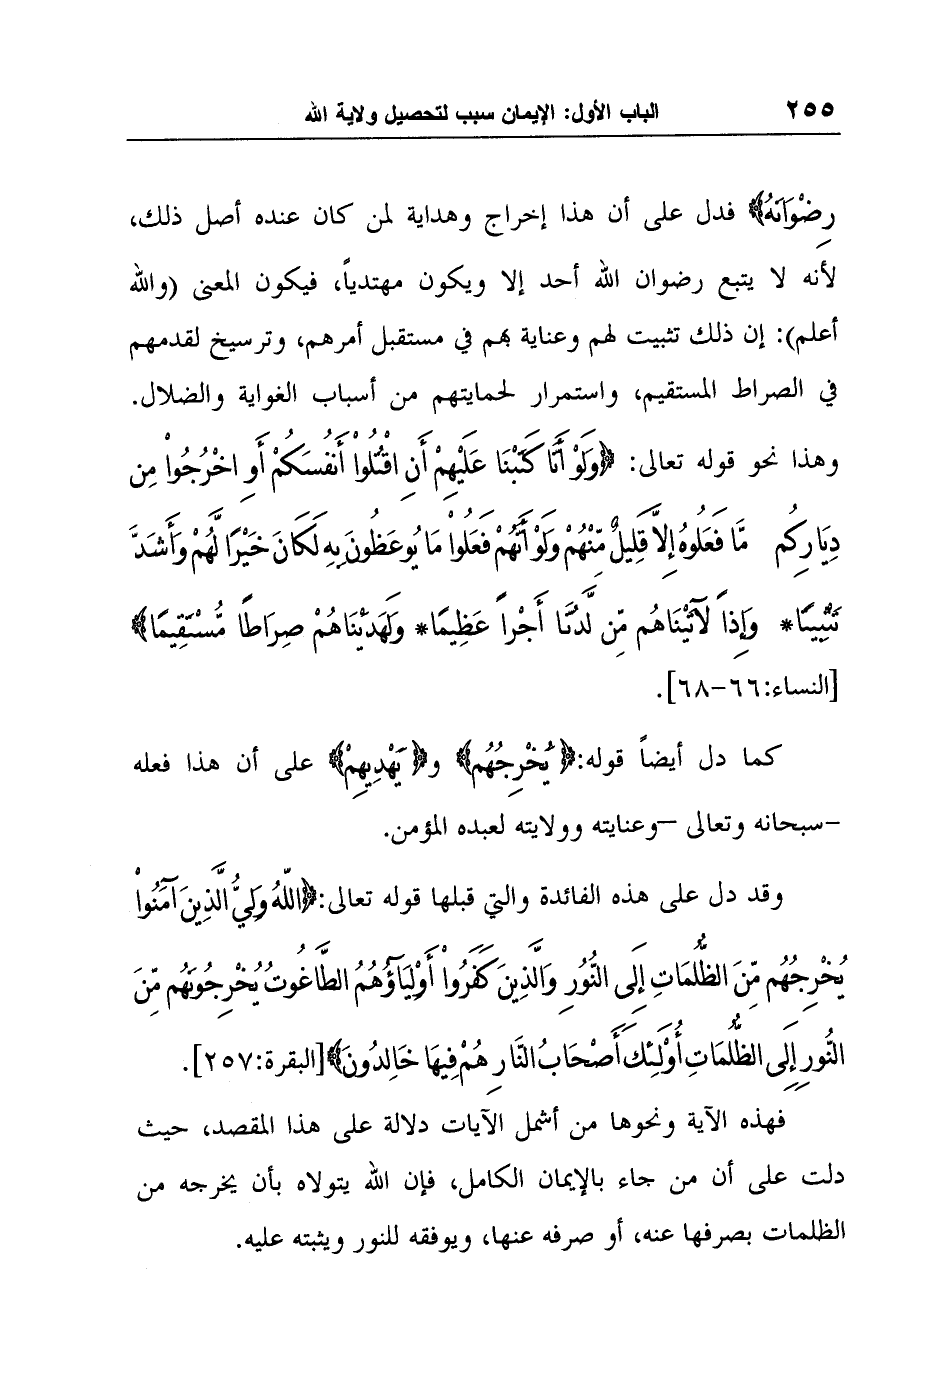 ٢٥٥ الباب الأول: الإيمان سبب لتحصيل ولاية الله
رِضْوَانَهُ﴾ فدل على أن هذا إخراج وهداية لمن كان عنده أصل ذلك،
لأنه لا يتبع رضوان الله أحد إلا ويكون مهتدياً، فيكون المعنى (والله
أعلم): إن ذلك تثبيت لهم وعناية بهم في مستقبل أمرهم، وترسيخ لقدمهم
في الصراط المستقيم، واستمرار لحمايتهم من أسباب الغواية والضلال.
وهذا نحو قوله تعالى: ﴿وَلَوْ أَنَّا كَتَبْنَا عَلَيْهِمْ أَنِ اقْتُلُواْ أَنفُسَكُمْ أَوِ اخْرُجُواْ مِن
دِيَارِكُم مَّا فَعَلُوهُ إِلاَّ قَلِيلٌ مِّنْهُمْ وَلَوْ أَنَّهُمْ فَعَلُواْ مَا يُوعَظُونَ بِهِ لَكَانَ خَيْرًا لَّهُمْ وَأَشَدَّ
تَثْبِيتًا* وَإِذاً لَآتَيْنَاهُم مِّن لَّدُنَّا أَجْراً عَظِيمًا* وَلَهَدَيْنَاهُمْ صِرَاطًا مُّسْتَقِيمًا﴾
[النساء:٦٦-٦٨].
كما دل أيضاً قوله:﴿يُخْرِجُهُم﴾ و﴿يَهْدِيهِمْ﴾ على أن هذا فعله
-سبحانه وتعالى -وعنايته وولايته لعبده المؤمن.
وقد دل على هذه الفائدة والتي قبلها قوله تعالى:﴿اللّهُ وَلِيُّ الَّذِينَ آمَنُواْ
يُخْرِجُهُم مِّنَ الظُّلُمَاتِ إِلَى النُّورِ وَالَّذِينَ كَفَرُواْ أَوْلِيَآؤُهُمُ الطَّاغُوتُ يُخْرِجُونَهُم مِّنَ
النُّورِ إِلَى الظُّلُمَاتِ أُوْلَئِكَ أَصْحَابُ النَّارِ هُمْ فِيهَا خَالِدُونَ﴾[البقرة:٢٥٧].
فهذه الآية ونحوها من أشمل الآيات دلالة على هذا المقصد، حيث
دلت على أن من جاء بالإيمان الكامل، فإن الله يتولاه بأن يخرجه من
الظلمات بصرفها عنه، أو صرفه عنها، ويوفقه للنور ويثبته عليه.